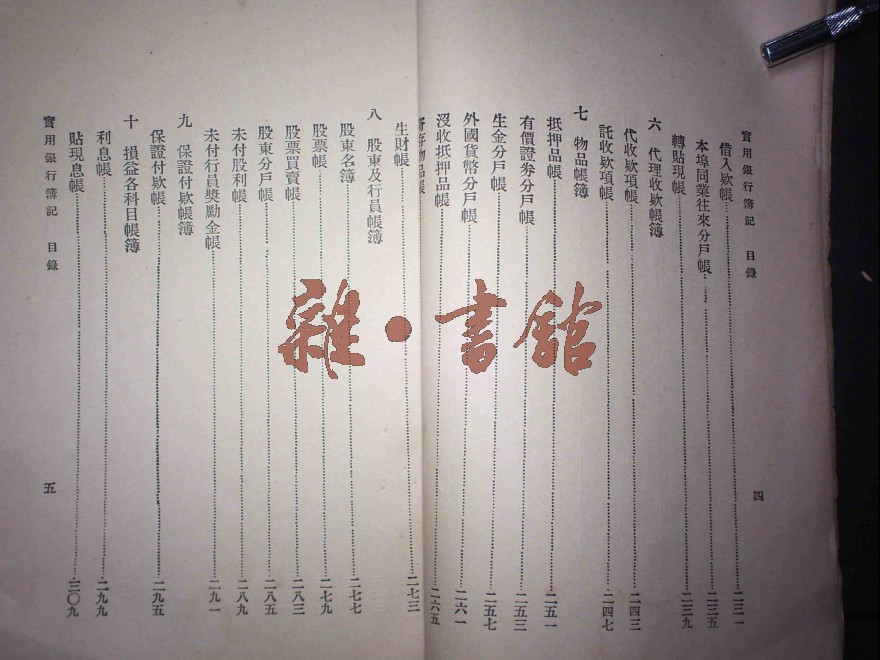 實用銀行簿記 目錄
四
借入欵帳二三一
本埠同業往來分戶帳二三五
轉貼現帳二三九
六 代理收欵帳簿
代收欵項帳二四三
託收欵項帳二四七
七 物品帳簿
抵押品帳二五一
有價證券分戶帳二五三
生金分戶帳二五七
外國貨幣分戶帳二六一
沒收抵押品帳二六五
寄存物品帳
生財帳二七三
八 股東及行員帳簿
股東名簿二七七
股票帳二七九
股票買賣帳二八三
股東分戶帳二八五
未付股利帳二八九
未付行員獎勵金帳二九一
九 保證付欵帳簿
保證付欵帳二九五
十 損益各科目帳簿
利息帳二九九
貼現息帳三〇九
實用銀行簿記 目錄
五
雜·書館